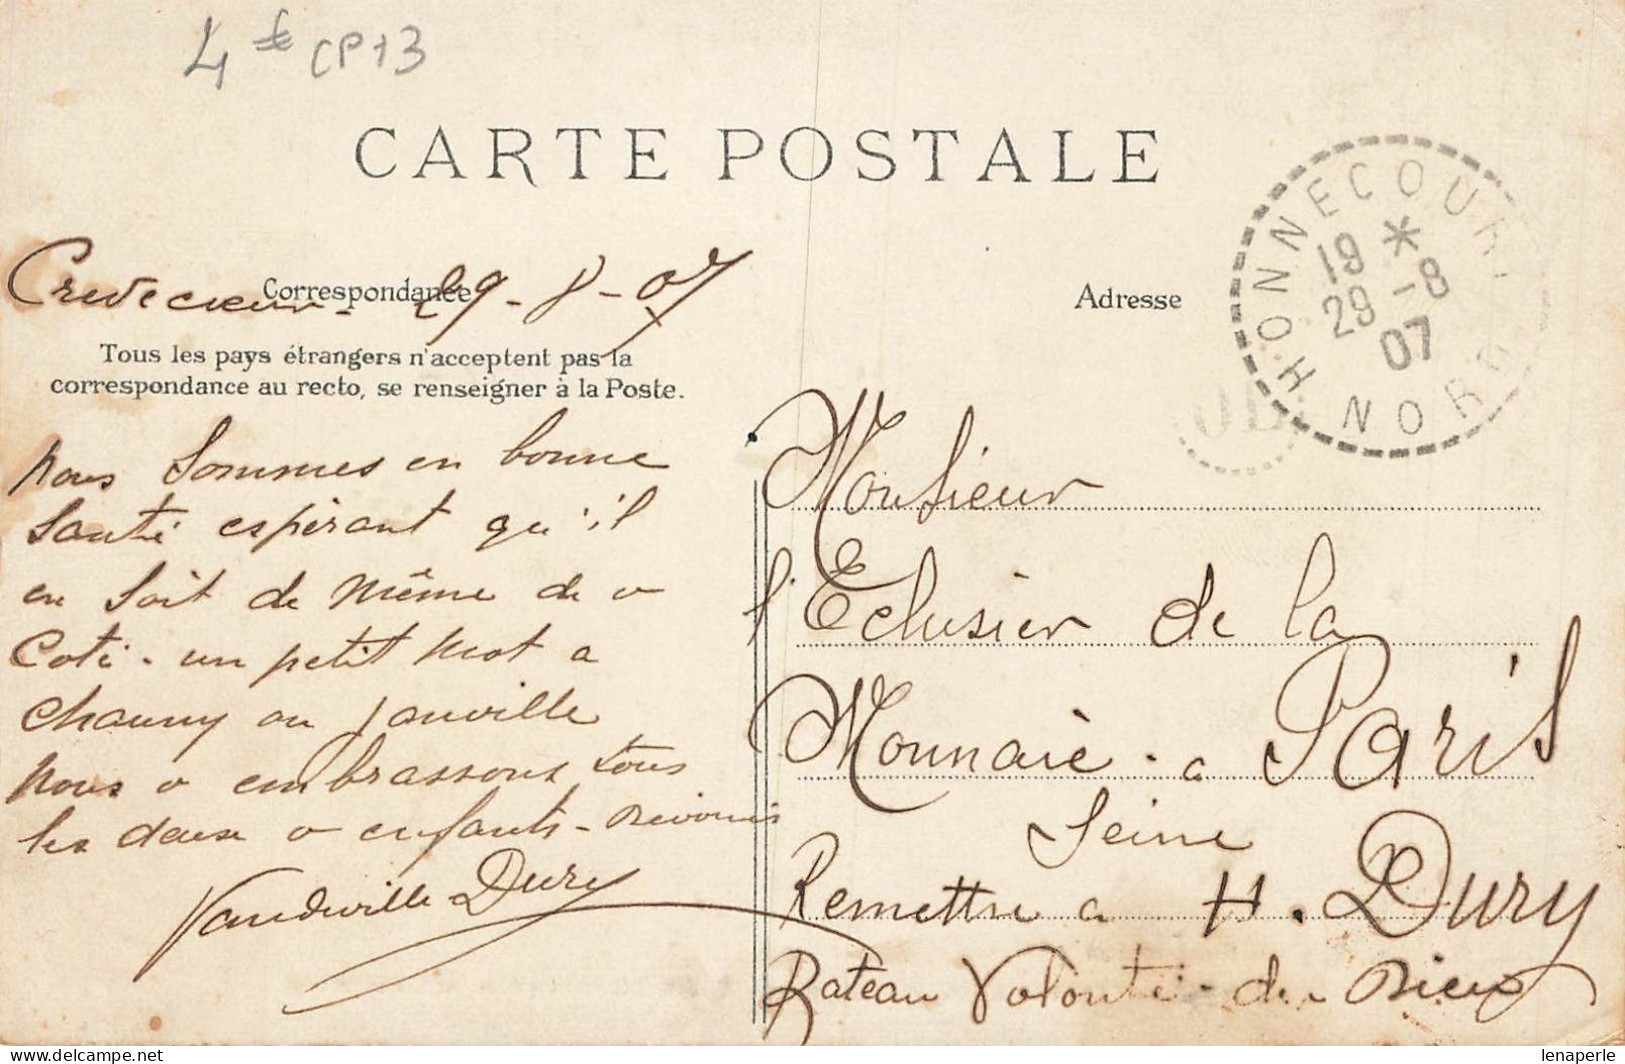 4 € CP13
CARTE POSTALE
HONNECOURT
19 *
29 -8
07
NORD
Correspondance
Adresse
Crevecoeur - 29 - 8 - 07
Tous les pays étrangers n'acceptent pas la
correspondance au recto, se renseigner à la Poste.
nous sommes en bonne
santé espérant qu'il
en soit de même de v
coté - un petit mot a
chauny ou janville
nous v embrassons tous
les deux v enfants -
Vandeville Dury
Monsieur
l'Eclusier de la
Monnaie - a Paris
Seine
Remettre a H. Dury
Bateau Volonté - de - Dieu
lenaperle